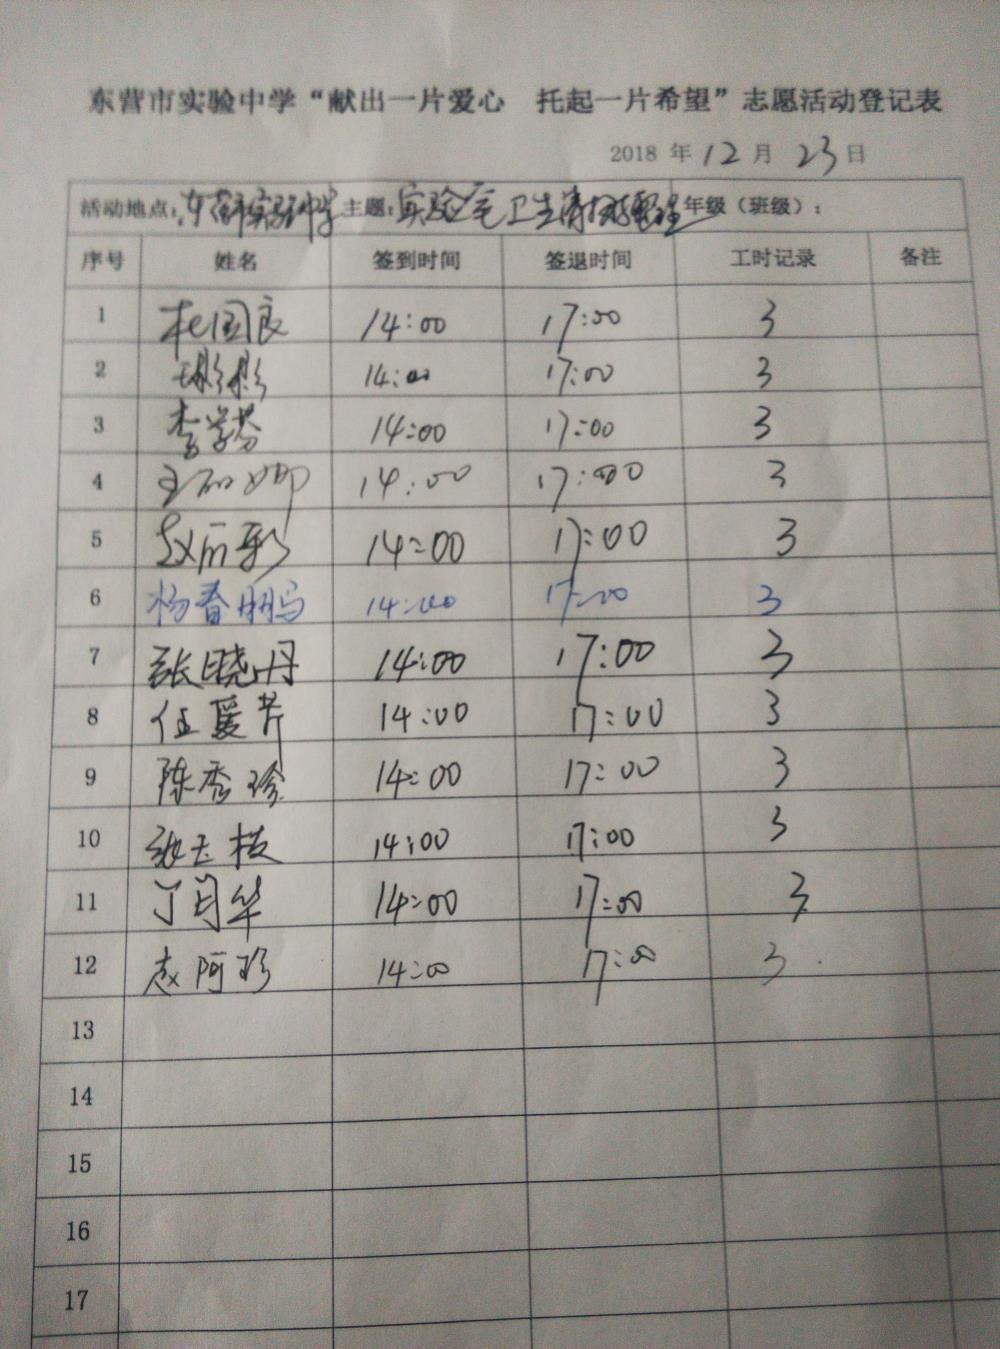 东营市实验中学“献出一片爱心 托起一片希望”志愿活动登记表
2018 年 12 月 23 日
活动地点：东营市实验中学 主题：实验室卫生清扫整理 年级（班级）：
序号 姓名 签到时间 签退时间 工时记录 备注
1 杜国良 14:00 17:00 3
2 14:00 17:00 3
3 李学芬 14:00 17:00 3
4 14:00 17:00 3
5 赵丽彩 14:00 17:00 3
6 杨春鹏 14:00 17:00 3
7 张晓丹 14:00 17:00 3
8 伍爱芹 14:00 17:00 3
9 陈秀珍 14:00 17:00 3
10 张玉枝 14:00 17:00 3
11 丁月华 14:00 17:00 3
12 赵阿珍 14:00 17:00 3
13
14
15
16
17